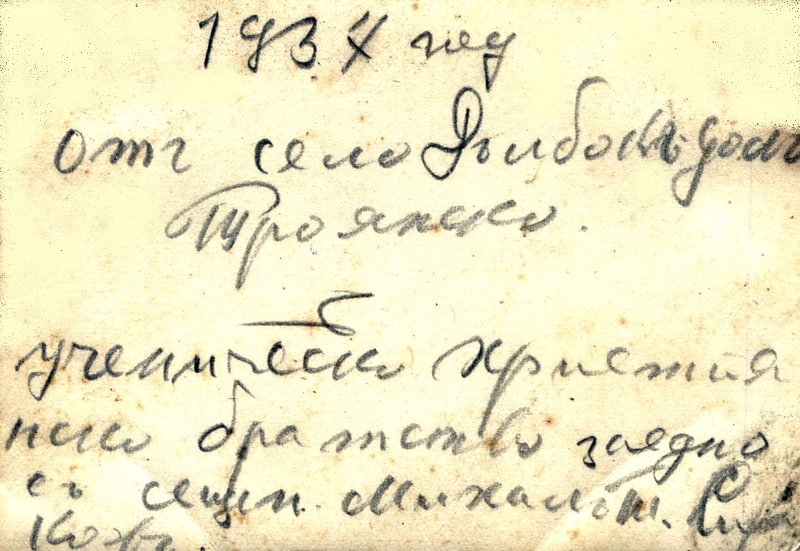 1937 год
отъ село Дълбокъ-долъ
Троянско.
ученическо християн
нско братство заедно
съ свещен. Михалъ Ш.
ковъ